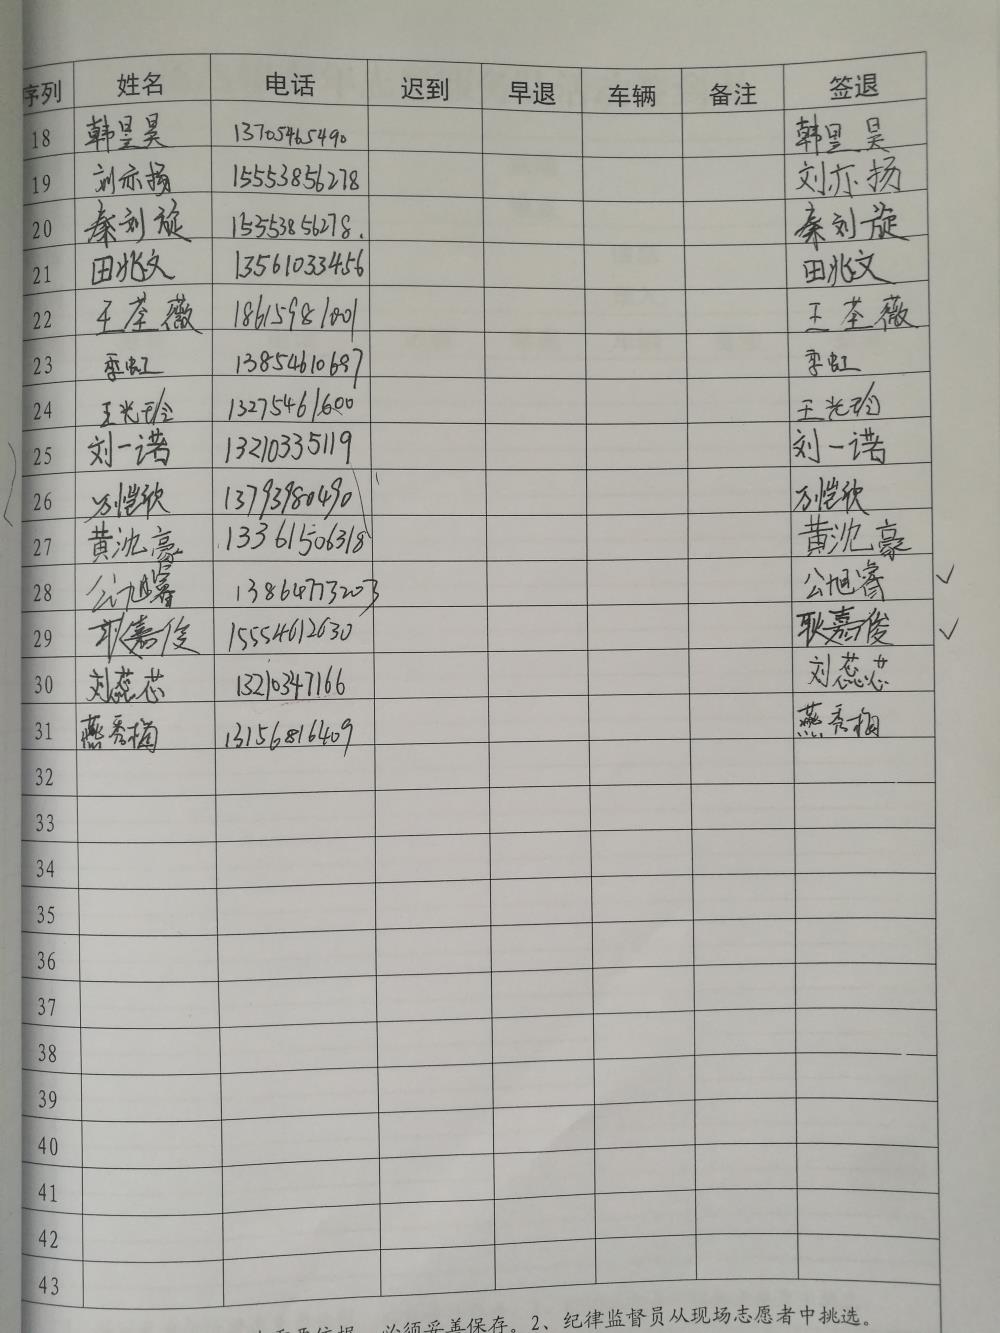 序列 姓名 电话 迟到 早退 车辆 备注 签退
18 韩昱昊 13705465490 韩昱昊
19 刘亦扬 15553856278 刘亦扬
20 秦刘旋 15553856278. 秦刘旋
21 田兆文 13561033456 田兆文
22 王荃薇 18615981001 王荃薇
23 季虹 13854610697 季虹
24 王光玲 13275461600 王光玲
25 刘一诺 13210335119 刘一诺
26 万恺欣 13793980490 万恺欣
27 黄沈豪 13361506318 黄沈豪
28 公旭睿 13864773203 公旭睿 ✓
29 耿嘉俊 15554612630 耿嘉俊 ✓
30 刘蕊芯 13210347166 刘蕊芯
31 燕秀梅 13156816409 燕秀梅
32
33
34
35
36
37
38
39
40
41
42
43
必须妥善保存。2、纪律监督员从现场志愿者中挑选。